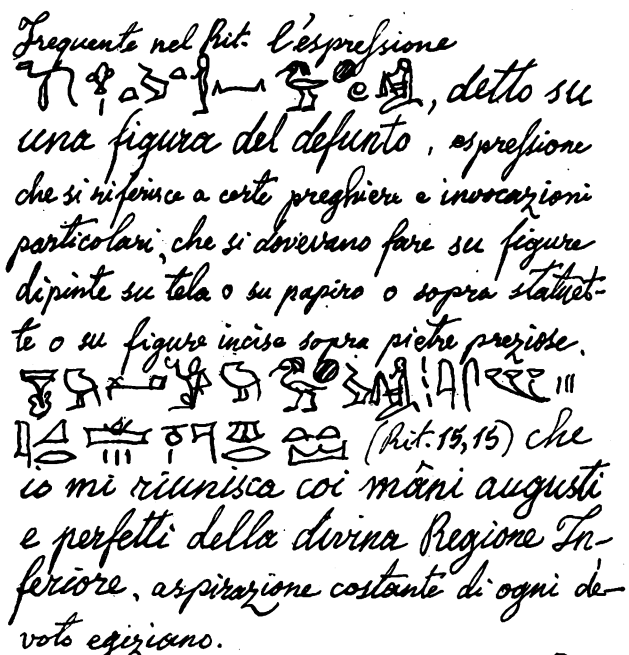 Frequente nel Rit. l'espressione
, detto su
una figura del defunto, espressione
che si riferisce a certe preghiere e invocazioni
particolari, che si dovevano fare su figure
dipinte su tela o su papiro o sopra statuet-
te o su figure incise sopra pietre preziose.
(Rit. 15, 15) che
io mi riunisca coi mâni augusti
e perfetti della divina Regione In-
feriore, aspirazione costante di ogni de-
voto egiziano.